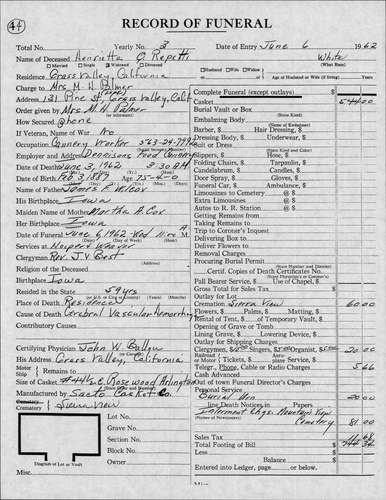 44
RECORD OF FUNERAL
Total No. Yearly No. 3 Date of Entry June 6 1962
Name of Deceased Henrietta O. Repetti White
(What Race)
Married Single Widowed Divorced Husband Wife Widow
Age of Husband or Wife (if living) Years
Residence Grass Valley, California
Charge to Mrs. M. H. Palmer
Address 131 Pine St, Grass Valley, Calif
Order given by Mrs. M. H. Palmer
How Secured Phone
If Veteran, Name of War No
Occupation Cannery Worker
Employer and Address Dennisons Food Cannery
Date of Death June 3, 1962 3:30 AM
Date of Birth Feb 3 1887 Age 75-4-0
Name of Father James A. Wilcox
His Birthplace Iowa
Maiden Name of Mother Martha A. Cox
Her Birthplace Iowa
Date of Funeral June 6, 1962 Wed 11:00 A M
Services at Hooper Weaver
Clergyman Rev J. V. Best
Religion of the Deceased
Birthplace Iowa
Resided in the State 59 yrs
Place of Death Residence
Cause of Death Cerebral Vascular Hemorrhage
Contributory Causes
Certifying Physician John W. Ballou
His Address Grass Valley, California
Motor Ship Remains to
Size of Casket Rosewood Arlington
Manufactured by Casket Co.
Cemetery
Crematory Sierra View
Lot No.
Grave No.
Section No.
Block No.
Owner
Diagram of Lot or Vault
Misc.
Complete Funeral (except outlays) $
Casket 544 00
Burial Vault or Box
(State Kind)
Embalming Body
(Name of Embalmer)
Barber, $ Hair Dressing, $
Dressing Body, $ Underwear, $
Suit or Dress
(State Kind and Color)
Slippers, $ Hose, $
Folding Chairs, $ Tarpaulin, $
Candelabrum, $ Candles, $
Door Spray, $ Gloves, $
Funeral Car, $ Ambulance, $
Limousines to Cemetery @ $
Extra Limousines @ $
Autos to R. R. Station @ $
Getting Remains from
Taking Remains to
Trip to Coroner's Inquest
Delivering Box to
Deliver Flowers to
Removal Charges
Procuring Burial Permit
Certif. Copies of Death Certificates No.
Pall Bearer Service, $ Use of Chapel, $
Gross Total for Sales Tax $
Outlay for Lot
Cremation Sierra View 60 00
Flowers, $ Palms, $ Matting, $
Rental of Tent, $ of Temporary Vault, $
Opening of Grave or Tomb
Lining Grave, $ Lowering Device, $
Outlay for Shipping Charges
Clergyman, $ Singers, $ Organist, $ 20 00
Telegr., Phone, Cable or Radio Charges 5 66
Cash Advanced
Out of town Funeral Director's Charges
Personal Service
Burial 20 00
line Death Notices in Papers
(Names of Newspapers)
Interment Chgs. Mountain View
Cemetery 81 00
Sales Tax
Total Footing of Bill $
Less
Balance $
Entered into Ledger, page or below.
Misc.